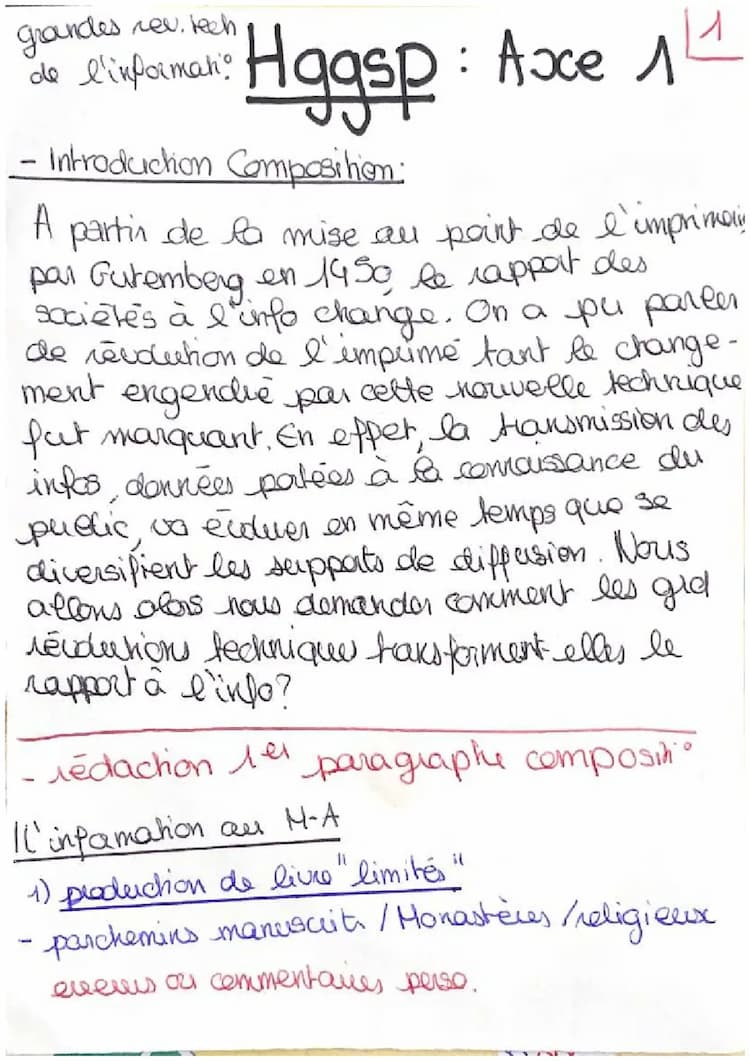 grandes rev. tech
de l'informati°
Hggsp : Axe 1
1
- Introduction Composition:
A partir de la mise au point de l'imprimerie
par Gutemberg en 1450, le rapport des
sociétés à l'info change. On a pu parler
de révolution de l'imprimé tant le change-
ment engendré par cette nouvelle technique
fut marquant. En effet, la transmission des
infos, données portées à la connaissance du
public, va évoluer en même temps que se
diversifient les supports de diffusion. Nous
allons alors nous demander comment les grd
révolutions technique transforment elles le
rapport à l'info?
- rédaction 1er paragraphe compositi°
I L'information au M-A
1) production de livre "limités"
- parchemins manuscrits / Monastères / religieux
erreurs ou commentaires perso.